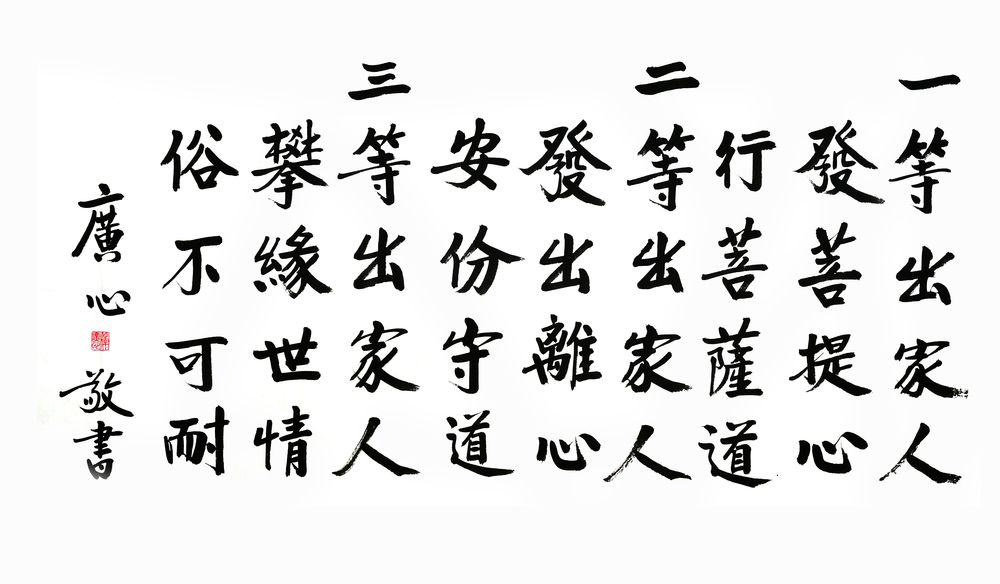 一等出家人
發菩提心
行菩薩道
二等出家人
發出離心
安份守道
三等出家人
攀緣世情
俗不可耐
廣心敬書